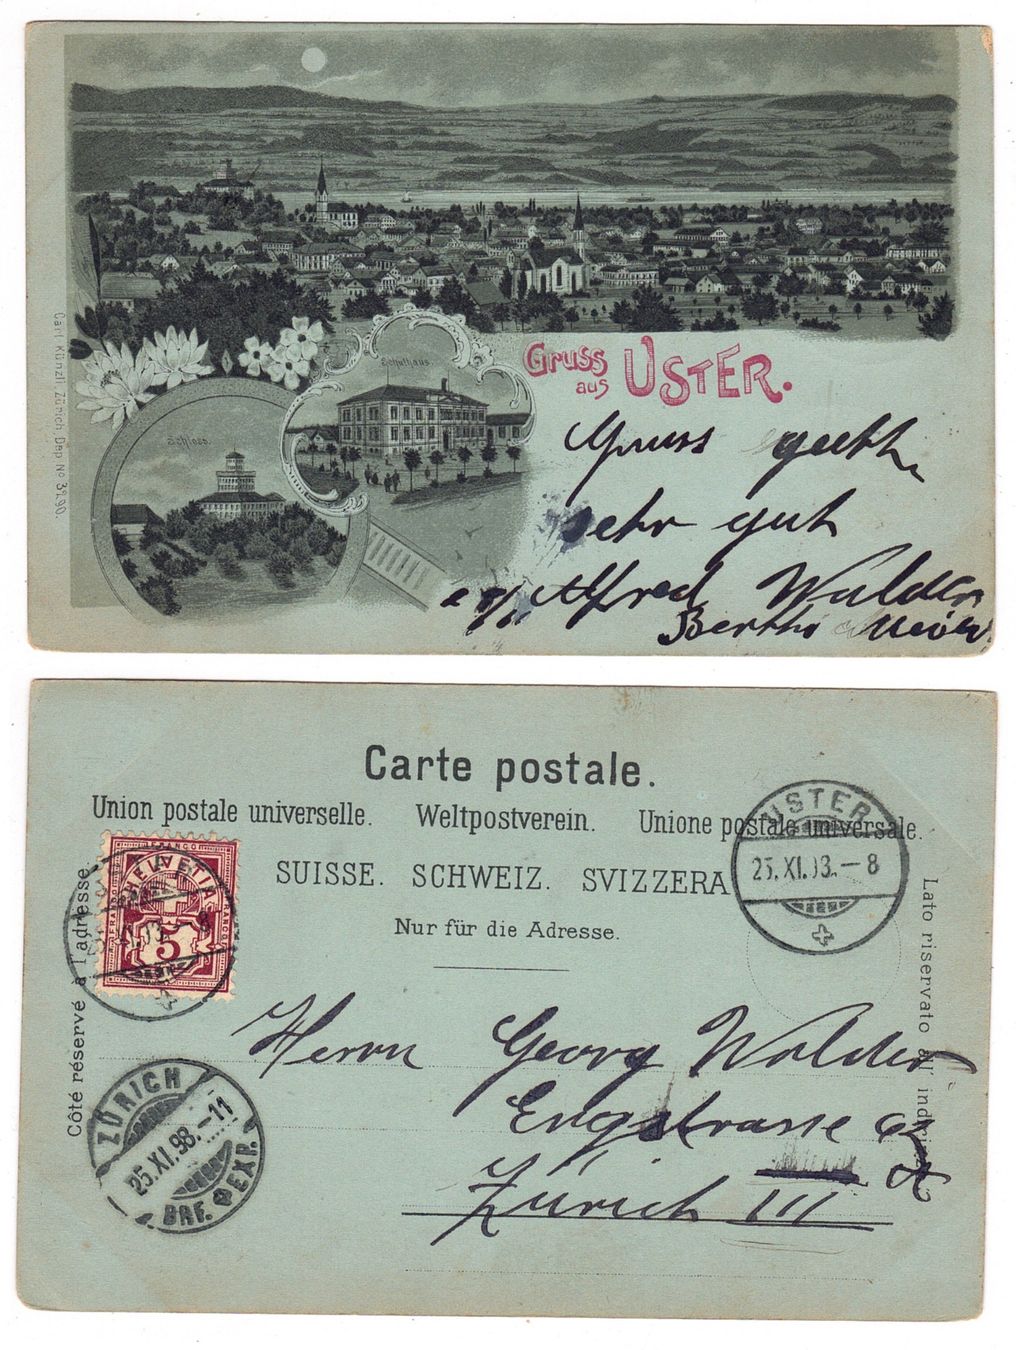 Carl Künzli Zürich Dep No 3290.
Schloss.
Schulhaus.
Gruss
aus USTER.
Gruss
sehr gut
Alfred Walder
Carte postale.
Union postale universelle. Weltpostverein. Unione postale universale.
SUISSE. SCHWEIZ. SVIZZERA
Nur für die Adresse.
Côté réservé à l'adresse.
Lato riservato all' indirizzo
FRANCO
HELVETIA
5
USTER
25.XI.93.-8
Herrn Georg Walder
Engstrasse
Zürich III
ZÜRICH
25.XI.98.-11
BRF. EXP.